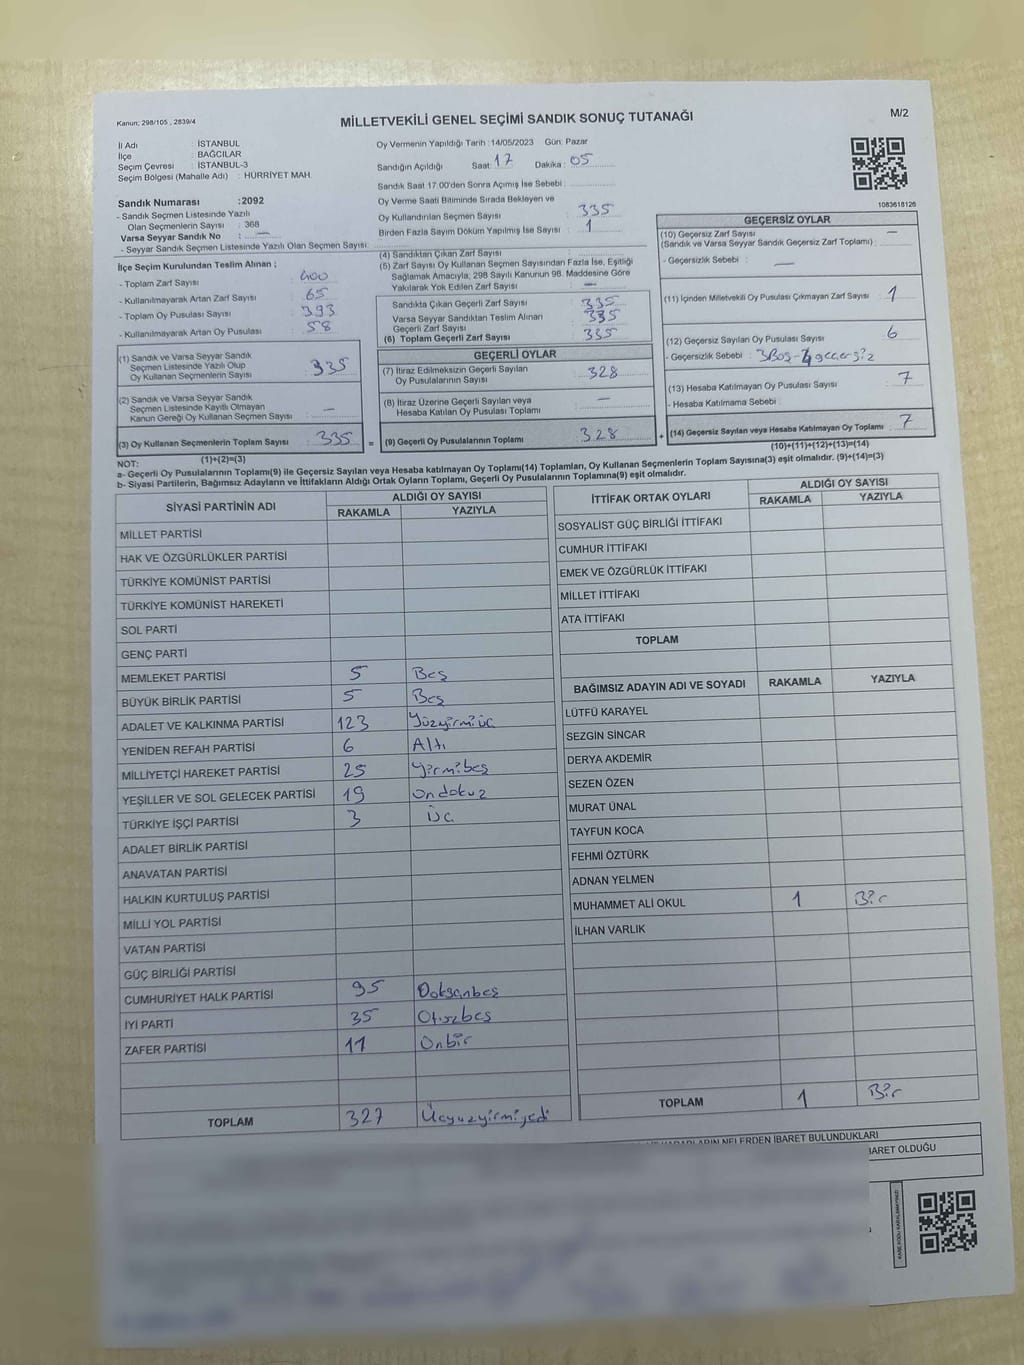 Kanun; 298/105 , 2839/4
MİLLETVEKİLİ GENEL SEÇİMİ SANDIK SONUÇ TUTANAĞI
M/2
İl Adı : İSTANBUL
İlçe : BAĞCILAR
Seçim Çevresi : İSTANBUL-3
Seçim Bölgesi (Mahalle Adı) : HÜRRİYET MAH.
Sandık Numarası :2092
- Sandık Seçmen Listesinde Yazılı
Olan Seçmenlerin Sayısı : 368
Varsa Seyyar Sandık No : —
- Seyyar Sandık Seçmen Listesinde Yazılı Olan Seçmen Sayısı:
Oy Vermenin Yapıldığı Tarih : 14/05/2023 Gün: Pazar
Sandığın Açıldığı Saat: 17 Dakika: 05
Sandık Saat 17.00'den Sonra Açımış İse Sebebi :
Oy Verme Saati Bitiminde Sırada Bekleyen ve
Oy Kullandırılan Seçmen Sayısı : 335
Birden Fazla Sayım Döküm Yapılmış İse Sayısı : 1
1083618126
İlçe Seçim Kurulundan Teslim Alınan ;
- Toplam Zarf Sayısı : 400
- Kullanılmayarak Artan Zarf Sayısı : 65
- Toplam Oy Pusulası Sayısı : 393
- Kullanılmayarak Artan Oy Pusulası : 58
(1) Sandık ve Varsa Seyyar Sandık
Seçmen Listesinde Yazılı Olup
Oy Kullanan Seçmenlerin Sayısı : 335
(2) Sandık ve Varsa Seyyar Sandık
Seçmen Listesinde Kayıtlı Olmayan
Kanun Gereği Oy Kullanan Seçmen Sayısı : —
(3) Oy Kullanan Seçmenlerin Toplam Sayısı : 335
(1)+(2)=(3)
(4) Sandıktan Çıkan Zarf Sayısı :
(5) Zarf Sayısı Oy Kullanan Seçmen Sayısından Fazla İse, Eşitliği
Sağlamak Amacıyla; 298 Sayılı Kanunun 98. Maddesine Göre
Yakılarak Yok Edilen Zarf Sayısı : —
Sandıkta Çıkan Geçerli Zarf Sayısı : 335
Varsa Seyyar Sandıktan Teslim Alınan
Geçerli Zarf Sayısı : 335
(6) Toplam Geçerli Zarf Sayısı : 335
GEÇERLİ OYLAR
(7) İtiraz Edilmeksizin Geçerli Sayılan
Oy Pusulalarının Sayısı : 328
(8) İtiraz Üzerine Geçerli Sayılan veya
Hesaba Katılan Oy Pusulası Toplamı : —
= (9) Geçerli Oy Pusulalarının Toplamı : 328
GEÇERSİZ OYLAR
(10) Geçersiz Zarf Sayısı
(Sandık ve Varsa Seyyar Sandık Geçersiz Zarf Toplamı) : —
- Geçersizlik Sebebi : —
(11) İçinden Milletvekili Oy Pusulası Çıkmayan Zarf Sayısı : 1
(12) Geçersiz Sayılan Oy Pusulası Sayısı : 6
- Geçersizlik Sebebi : 3Boş- geçersiz
(13) Hesaba Katılmayan Oy Pusulası Sayısı : 7
- Hesaba Katılmama Sebebi :
+ (14) Geçersiz Sayılan veya Hesaba Katılmayan Oy Toplamı : 7
(10)+(11)+(12)+(13)=(14)
NOT:
a- Geçerli Oy Pusulalarının Toplamı(9) ile Geçersiz Sayılan veya Hesaba katılmayan Oy Toplamı(14) Toplamları, Oy Kullanan Seçmenlerin Toplam Sayısına(3) eşit olmalıdır. (9)+(14)=(3)
b- Siyasi Partilerin, Bağımsız Adayların ve İttifakların Aldığı Ortak Oyların Toplamı, Geçerli Oy Pusulalarının Toplamına(9) eşit olmalıdır.
SİYASİ PARTİNİN ADI ALDIĞI OY SAYISI
RAKAMLA YAZIYLA
MİLLET PARTİSİ
HAK VE ÖZGÜRLÜKLER PARTİSİ
TÜRKİYE KOMÜNİST PARTİSİ
TÜRKİYE KOMÜNİST HAREKETİ
SOL PARTİ
GENÇ PARTİ
MEMLEKET PARTİSİ 5 Beş
BÜYÜK BİRLİK PARTİSİ 5 Beş
ADALET VE KALKINMA PARTİSİ 123 Yüzyirmiüç
YENİDEN REFAH PARTİSİ 6 Altı
MİLLİYETÇİ HAREKET PARTİSİ 25 Yirmibeş
YEŞİLLER VE SOL GELECEK PARTİSİ 19 Ondokuz
TÜRKİYE İŞÇİ PARTİSİ 3 Üç
ADALET BİRLİK PARTİSİ
ANAVATAN PARTİSİ
HALKIN KURTULUŞ PARTİSİ
MİLLİ YOL PARTİSİ
VATAN PARTİSİ
GÜÇ BİRLİĞİ PARTİSİ
CUMHURİYET HALK PARTİSİ 95 Doksanbeş
İYİ PARTİ 35 Otuzbeş
ZAFER PARTİSİ 11 Onbir
TOPLAM 327 Üçyüzyirmiyedi
İTTİFAK ORTAK OYLARI ALDIĞI OY SAYISI
RAKAMLA YAZIYLA
SOSYALİST GÜÇ BİRLİĞİ İTTİFAKI
CUMHUR İTTİFAKI
EMEK VE ÖZGÜRLÜK İTTİFAKI
MİLLET İTTİFAKI
ATA İTTİFAKI
TOPLAM
BAĞIMSIZ ADAYIN ADI VE SOYADI RAKAMLA YAZIYLA
LÜTFÜ KARAYEL
SEZGİN SİNCAR
DERYA AKDEMİR
SEZEN ÖZEN
MURAT ÜNAL
TAYFUN KOCA
FEHMİ ÖZTÜRK
ADNAN YELMEN
MUHAMMET ALİ OKUL 1 Bir
İLHAN VARLIK
TOPLAM 1 Bir
NELERDEN İBARET BULUNDUKLARI
OLDUĞU